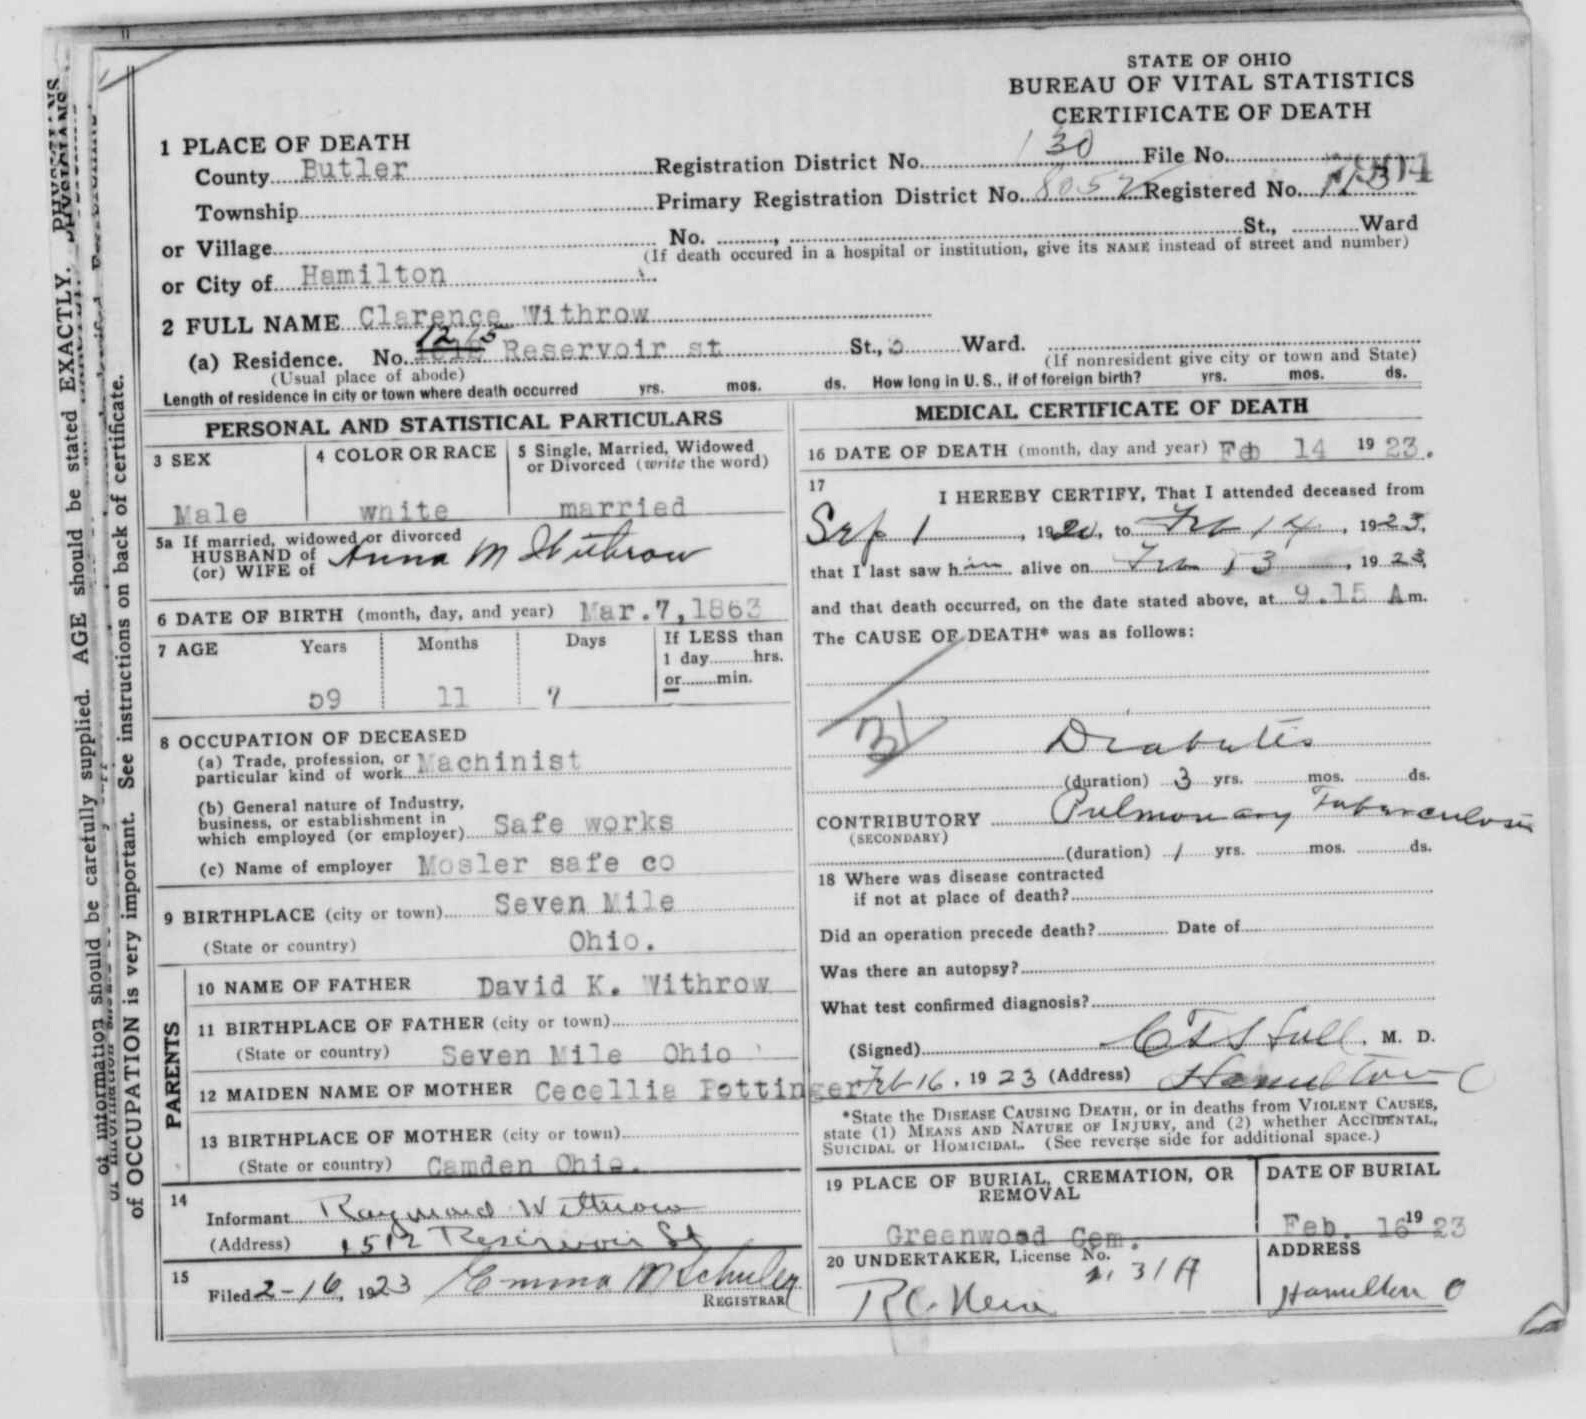 STATE OF OHIO
BUREAU OF VITAL STATISTICS
CERTIFICATE OF DEATH
1 PLACE OF DEATH
County Butler Registration District No. 130 File No.
Township Primary Registration District No. 8052 Registered No.
or Village No. , St., Ward
(If death occured in a hospital or institution, give its NAME instead of street and number)
or City of Hamilton
2 FULL NAME Clarence Withrow
(a) Residence. No. Reservoir st St., Ward.
(Usual place of abode) (If nonresident give city or town and State)
Length of residence in city or town where death occurred yrs. mos. ds. How long in U. S., if of foreign birth? yrs. mos. ds.
PERSONAL AND STATISTICAL PARTICULARS
3 SEX 4 COLOR OR RACE 5 Single, Married, Widowed
or Divorced (write the word)
Male white married
5a If married, widowed or divorced
HUSBAND of Anna M Withrow
(or) WIFE of
6 DATE OF BIRTH (month, day, and year) Mar.7,1863
7 AGE Years Months Days If LESS than
1 day hrs.
or min.
59 11 7
8 OCCUPATION OF DECEASED
(a) Trade, profession, or
particular kind of work Machinist
(b) General nature of Industry,
business, or establishment in
which employed (or employer) Safe works
(c) Name of employer Mosler safe co
9 BIRTHPLACE (city or town) Seven Mile
(State or country) Ohio.
PARENTS
10 NAME OF FATHER David K. Withrow
11 BIRTHPLACE OF FATHER (city or town)
(State or country) Seven Mile Ohio
12 MAIDEN NAME OF MOTHER Cecellia Pottinger
13 BIRTHPLACE OF MOTHER (city or town)
(State or country) Camden Ohio.
14
Informant Raymond Withrow
(Address) 1512 Reservoir St
15
Filed 2-16, 1923 Emma M Schuler
REGISTRAR
MEDICAL CERTIFICATE OF DEATH
16 DATE OF DEATH (month, day and year) Feb 14 1923.
17
I HEREBY CERTIFY, That I attended deceased from
Sep 1, 1920, to Feb 14, 1923,
that I last saw him alive on Feb 13, 1923,
and that death occurred, on the date stated above, at 9.15 Am.
The CAUSE OF DEATH* was as follows:
31
Diabetis
(duration) 3 yrs. mos. ds.
CONTRIBUTORY Pulmonary Tuberculosis
(SECONDARY)
(duration) 1 yrs. mos. ds.
18 Where was disease contracted
if not at place of death?
Did an operation precede death? Date of
Was there an autopsy?
What test confirmed diagnosis?
(Signed) M. D.
Feb 16, 1923 (Address) Hamilton O
*State the DISEASE CAUSING DEATH, or in deaths from VIOLENT CAUSES,
state (1) MEANS AND NATURE OF INJURY, and (2) whether ACCIDENTAL,
SUICIDAL or HOMICIDAL. (See reverse side for additional space.)
19 PLACE OF BURIAL, CREMATION, OR
REMOVAL
Greenwood Cem.
DATE OF BURIAL
Feb. 16 1923
20 UNDERTAKER, License No.
31A
ADDRESS
Hamilton O
of information should be carefully supplied. AGE should be stated EXACTLY. PHYSICIANS
of OCCUPATION is very important. See instructions on back of certificate.